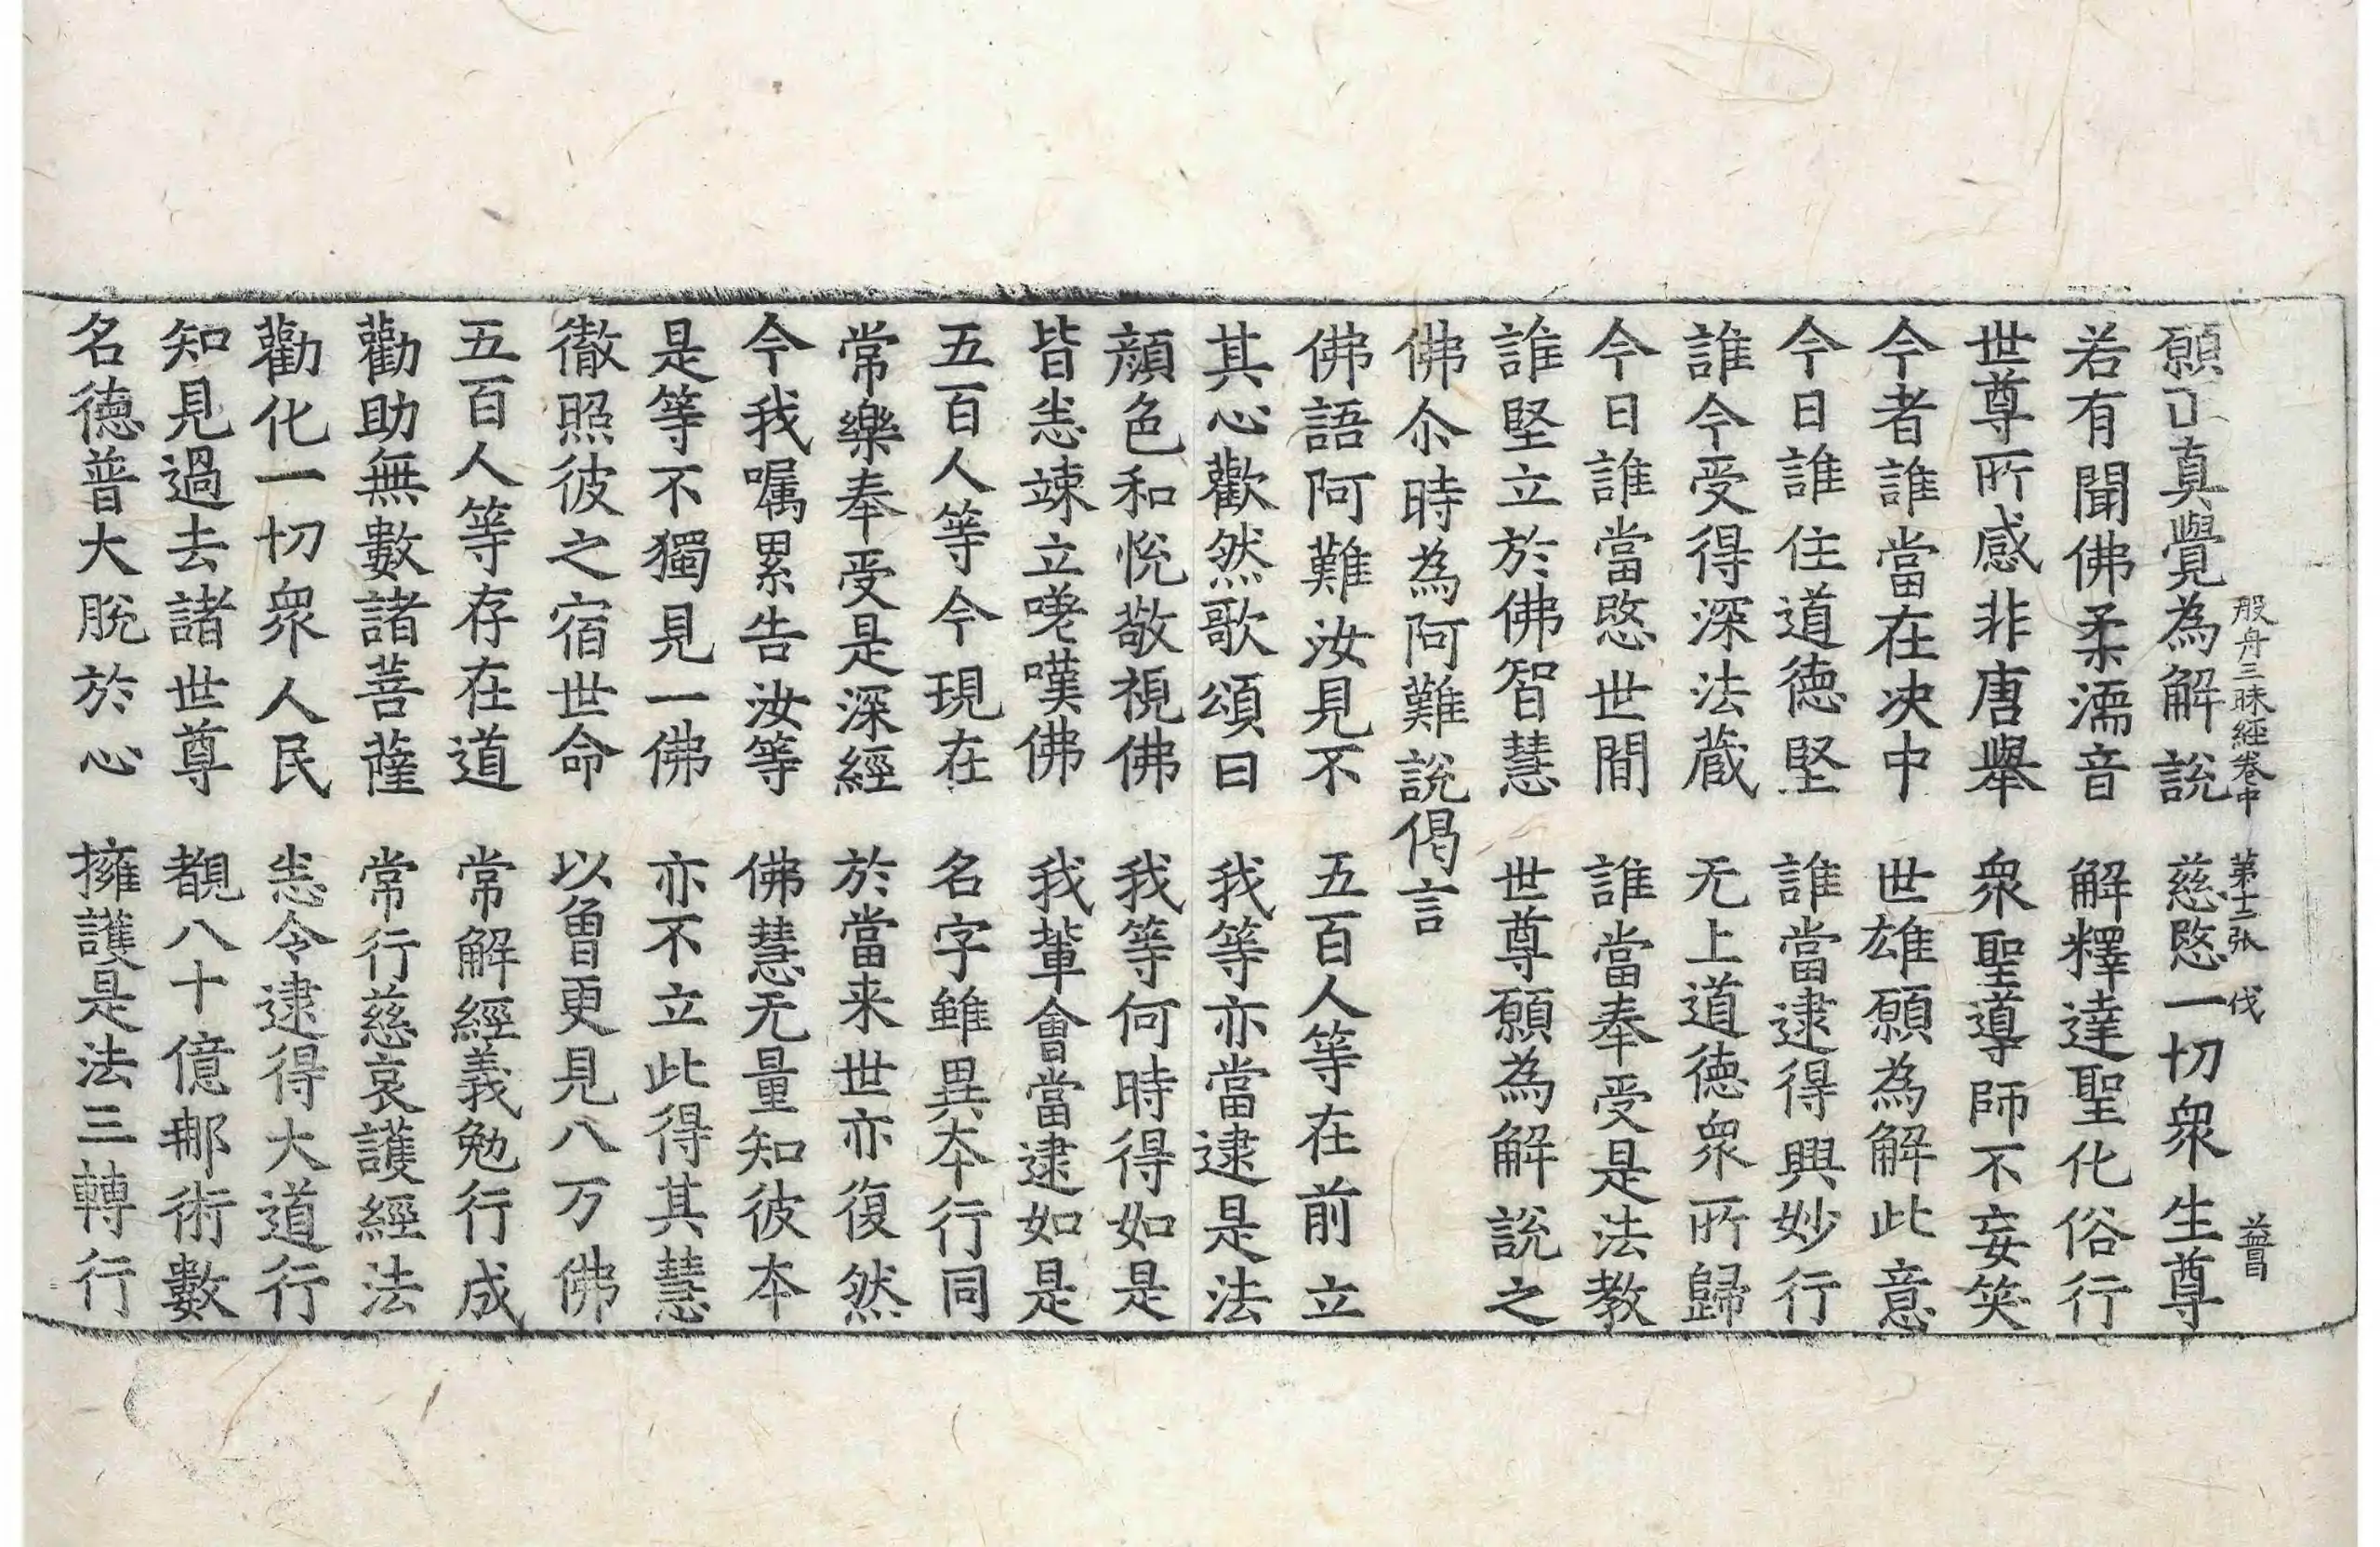 般舟三昧經卷中 第十二張 伐 益昌
願 真覺為解說 慈愍一切衆生尊
若有聞佛柔濡音 解釋達聖化俗行
世尊所感非唐舉 衆聖導師不妄笑
今者誰當在決中 世雄願為解此意
今日誰住道德堅 誰當逮得興妙行
誰今受得深法蔵 无上道德衆所歸
今日誰當愍世間 誰當奉受是法教
誰堅立於佛智慧 世尊願為解說之
佛尒時為阿難說偈言
佛語阿難汝見不 五百人等在前立
其心歡然歌頌曰 我等亦當逮是法
顔色和悅敬視佛 我等何時得如是
皆恚竦立嗟嘆佛 我輩會當逮如是
五百人等今現在 名字雖異夲行同
常樂奉受是深經 於當来世亦復然
今我嘱累告汝等 佛慧无量知彼夲
是等不獨見一佛 亦不立此得其慧
徹照彼之宿世命 以曽更見八万佛
五百人等存在道 常解經義勉行成
勸助無數諸菩薩 常行慈哀護經法
勸化一切衆人民 恚令逮得大道行
知見過去諸世尊 覩八十億那術數
名德普大脫於心 擁護是法三轉行